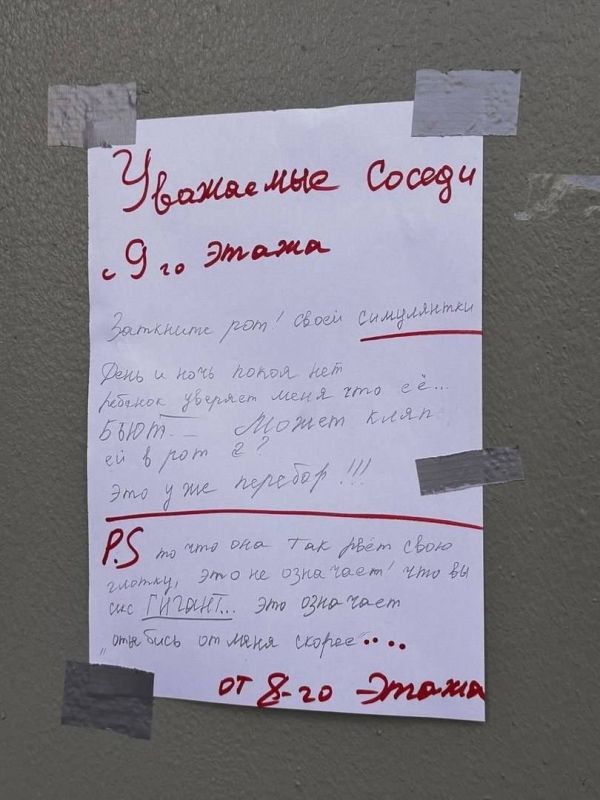 Уважаемые соседи
с 9го этажа
Заткните рот! своей симулянтки
День и ночь покоя нет
ребёнок уверяет меня что её...
БЬЮТ... Может кляп
ей в рот ?
Это уже перебор!!!
P.S то что она так рвёт свою
глотку, это не означает! что вы
секс ГИГАНТ... это означает
"отъ*бись от меня скорее"....
от 8-го этажа